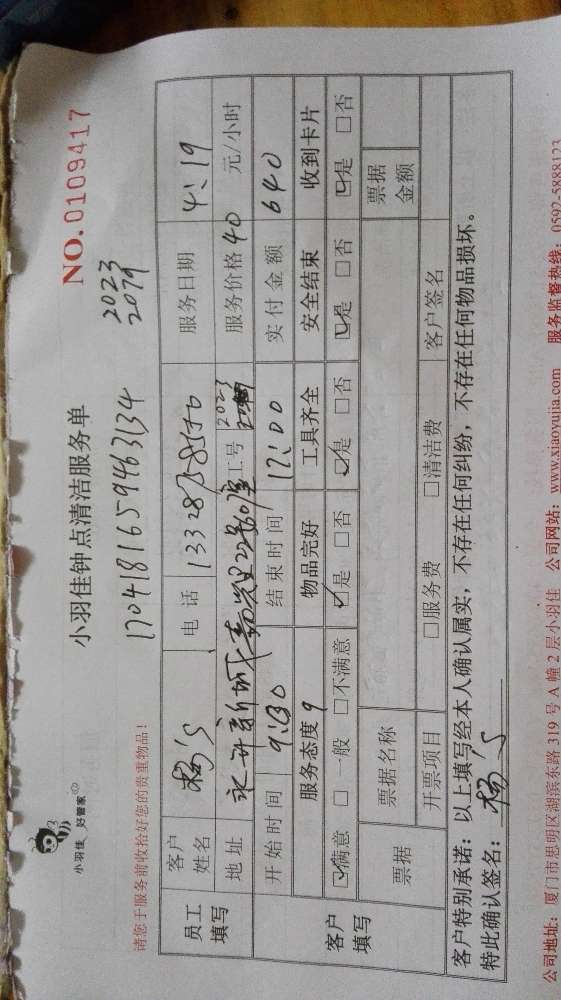 小羽佳 好管家
小羽佳钟点清洁服务单
NO.0109417
17041816594463134
2023
2079
请您于服务前收拾好您的贵重物品！
员工填写
客户姓名
电话
服务日期 4、19
地址
工号 2023
服务价格 40 元/小时
客户填写
开始时间 9:30
结束时间 12:00
实付金额 640
服务态度 9
物品完好
工具齐全
安全结束
收到卡片
☑满意 □一般 □不满意
☑是 □否
☑是 □否
☑是 □否
☑是 □否
票据
票据名称
票据金额
开票项目
□服务费 □清洁费
客户签名
客户特别承诺：以上填写经本人确认属实，不存在任何纠纷，不存在任何物品损坏。
特此确认签名：
公司地址：厦门市思明区湖滨东路 319 号 A 幢 2 层小羽佳 公司网站：www.xiaoyujia.com 服务监督热线：0592-5888123